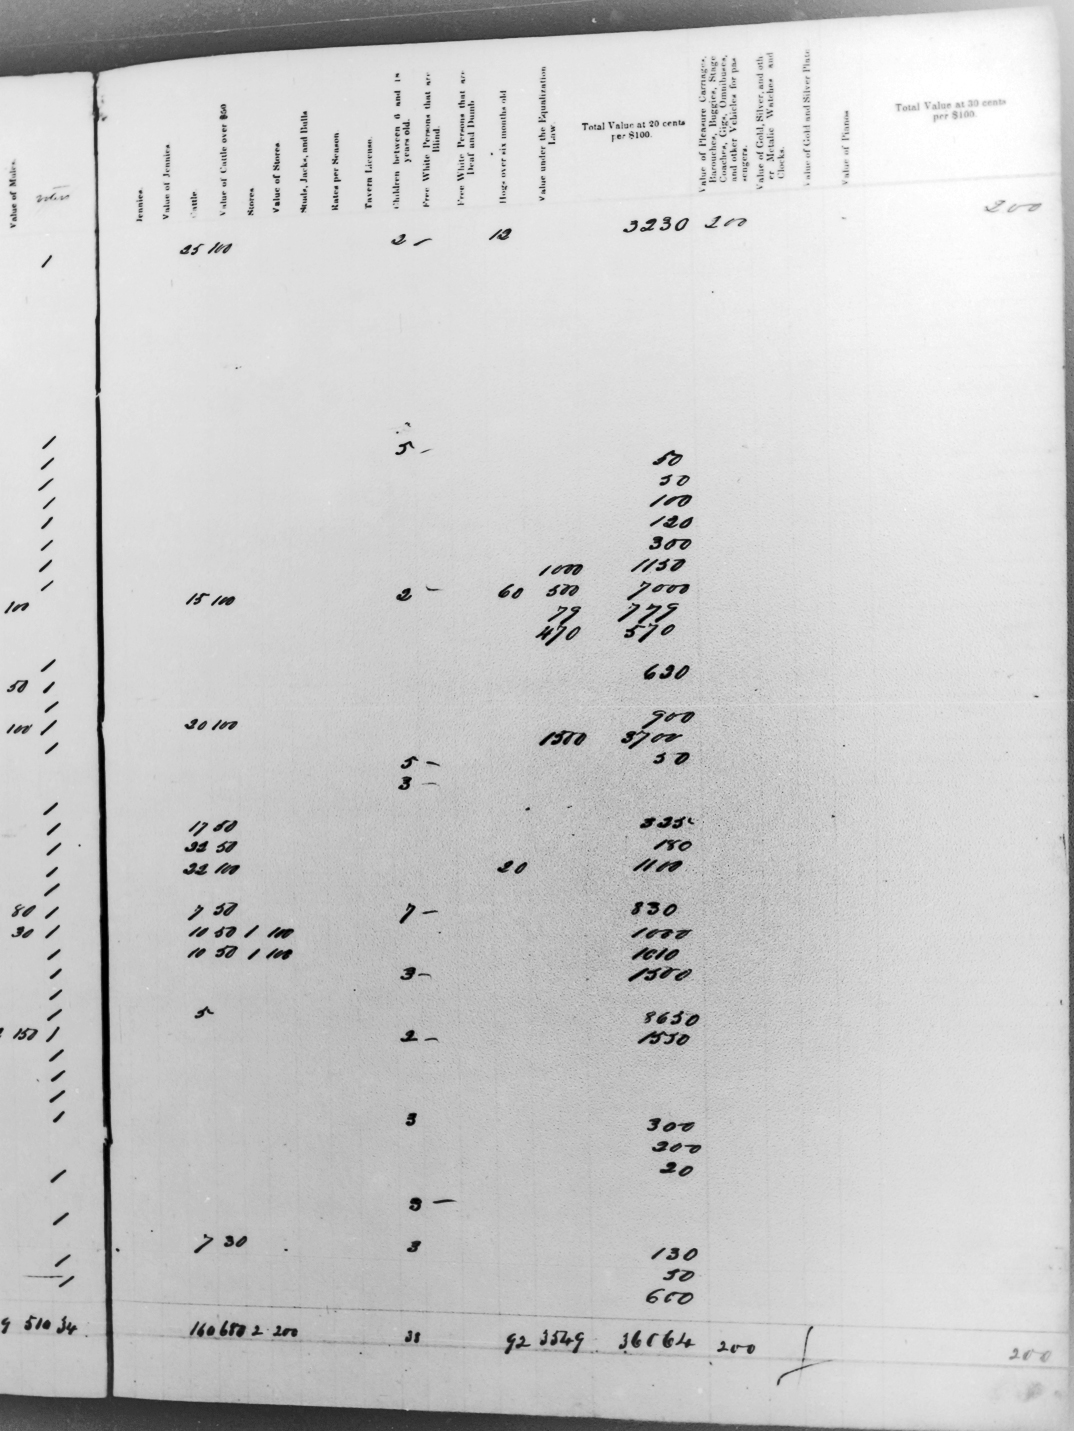 Value of Mules.
voters
Jennies
Value of Jennies
Cattle
Value of Cattle over $50
Stores
Value of Stores
Studs, Jacks, and Bulls
Rates per Season
Tavern License.
Children between 6 and 18 years old.
Free White Persons that are Blind.
Free White Persons that are Deaf and Dumb
Hogs over six months old
Value under the Equalization Law.
Total Value at 20 cents per $100.
Value of Pleasure Carriages, Barouches, Buggies, Stage Coaches, Gigs, Omnibuses, and other Vehicles for passengers.
Value of Gold, Silver, and other Metalic Watches and Clocks.
Value of Gold and Silver Plate
Value of Pianos
Total Value at 30 cents per $100.
1 25 100 2 – 12 3230 200 200
1 5 – 50
1 50
1 100
1 120
1 300
1 1000 1150
100 1 15 100 2 – 60 500 7000
79 779
470 570
1 630
50 1
1 900
100 1 20 100 1500 3700
1 5 – 50
3 –
1 17 50 325
1 22 50 180
1 22 100 20 1100
1
80 1 7 50 7 – 830
30 1 10 50 1 100 1000
1 10 50 1 100 1010
1 3 – 1500
1
1 5 8650
150 1 2 – 1550
1
1
1
1 3 300
200
20
1 3 –
1
1 7 30 3 130
1 50
600
9 510 34 160 680 2 200 38 92 3549 36064 200 200